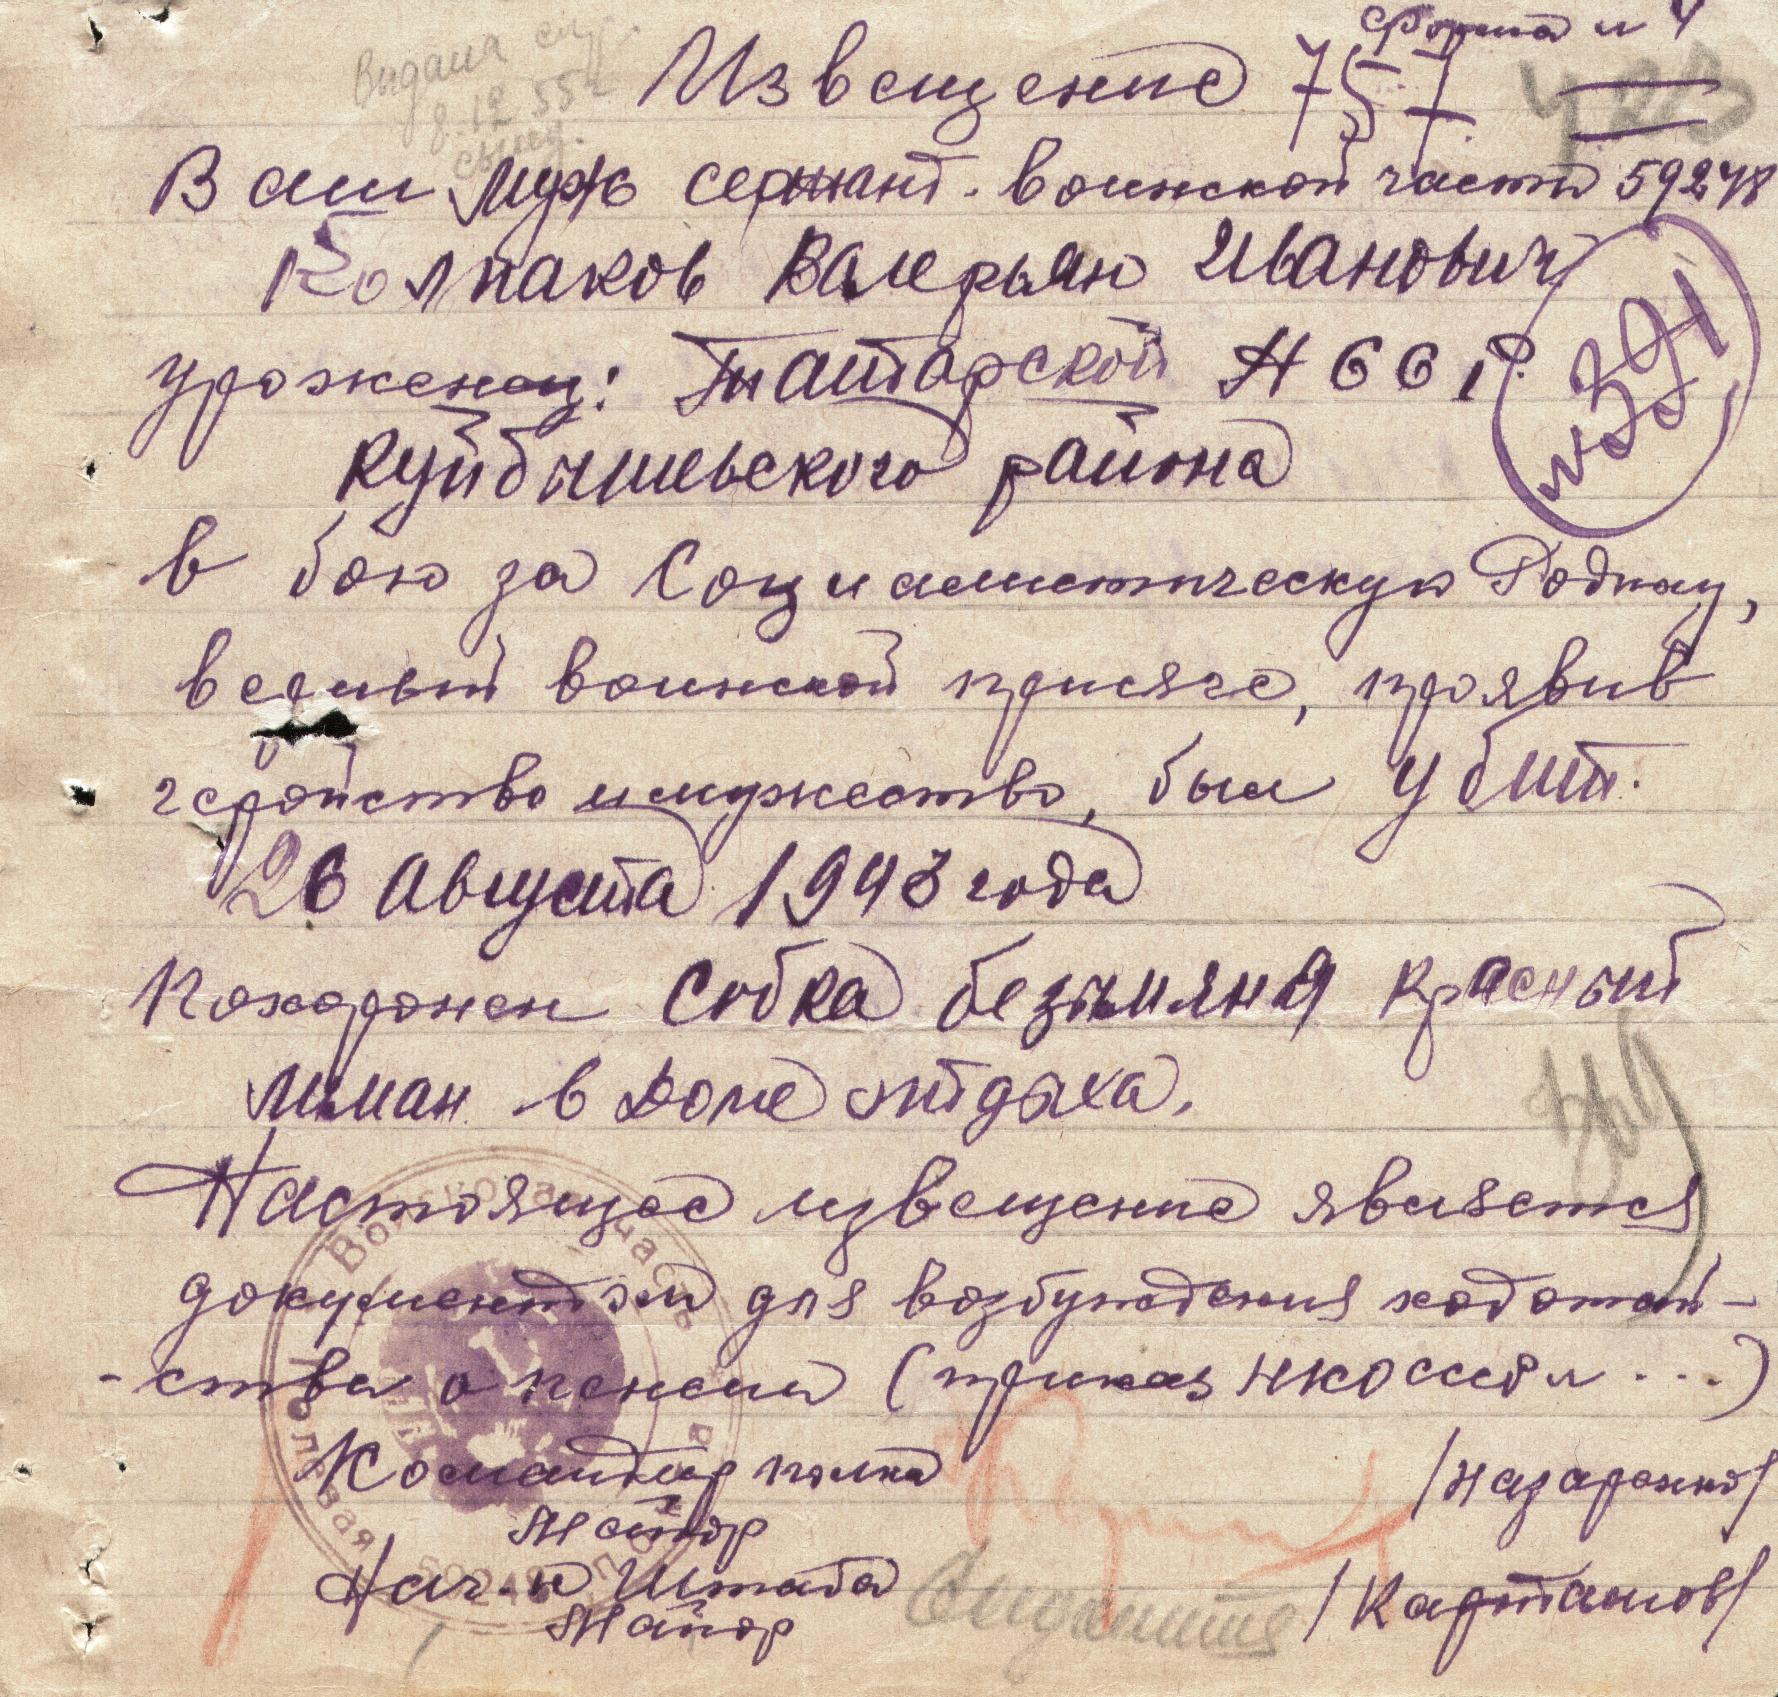 Форма н 4
Видана спр.
8.12.55 г
Извещение 757
423
Ваш муж сержант. воинской части 59248
Колпаков Валерьян Иванович
№ 391
уроженец: Татарской АССР
Куйбышевского района
в бою за Социалистическую Родину,
верный воинской присяге, проявив
геройство и мужество, был убит.
26 августа 1943 года
Похоронен совка безымяня красный
лиман в Доме отдыха.
Настоящее извещение является
документом для возбуждения ходотай-
-ства о пенсии (приказ НКО СССР н ...)
Командир полка
Майор /Назаренко/
Нач-к Штаба
Майор /Картамов/
Войсковая часть
Полевая почта